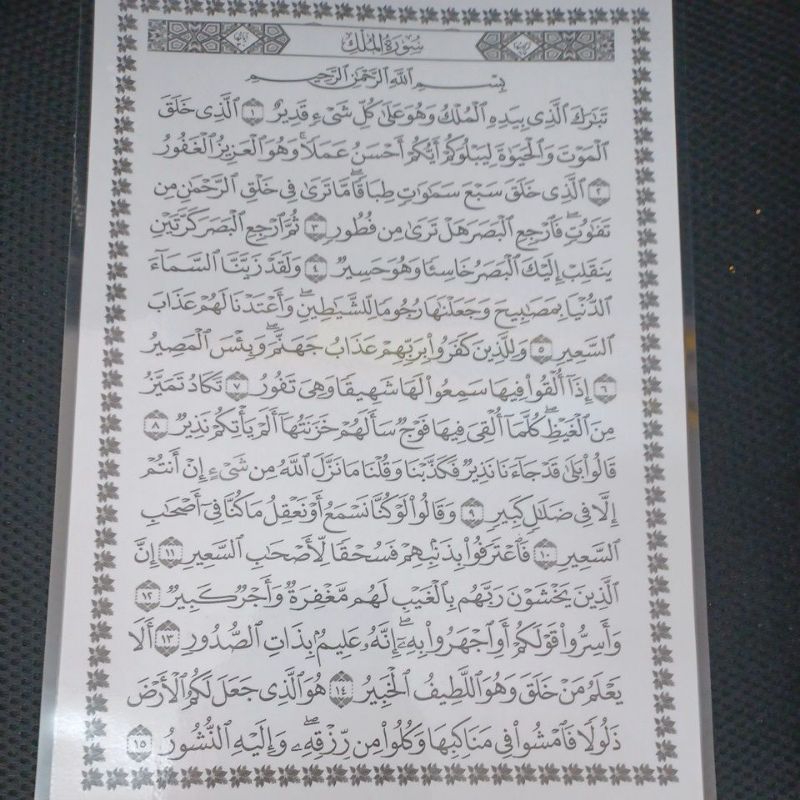 سُورَةُ المُلْكِ
بِسْمِ اللَّهِ الرَّحْمَٰنِ الرَّحِيمِ
تَبَارَكَ الَّذِي بِيَدِهِ الْمُلْكُ وَهُوَ عَلَىٰ كُلِّ شَيْءٍ قَدِيرٌ ١ الَّذِي خَلَقَ
الْمَوْتَ وَالْحَيَوٰةَ لِيَبْلُوَكُمْ أَيُّكُمْ أَحْسَنُ عَمَلًا ۚ وَهُوَ الْعَزِيزُ الْغَفُورُ
٢ الَّذِي خَلَقَ سَبْعَ سَمَٰوَٰتٍ طِبَاقًا ۖ مَّا تَرَىٰ فِي خَلْقِ الرَّحْمَٰنِ مِن
تَفَٰوُتٍ ۖ فَارْجِعِ الْبَصَرَ هَلْ تَرَىٰ مِن فُطُورٍ ٣ ثُمَّ ارْجِعِ الْبَصَرَ كَرَّتَيْنِ
يَنقَلِبْ إِلَيْكَ الْبَصَرُ خَاسِئًا وَهُوَ حَسِيرٌ ٤ وَلَقَدْ زَيَّنَّا السَّمَآءَ
الدُّنْيَا بِمَصَٰبِيحَ وَجَعَلْنَٰهَا رُجُومًا لِّلشَّيَٰطِينِ ۖ وَأَعْتَدْنَا لَهُمْ عَذَابَ
السَّعِيرِ ٥ وَلِلَّذِينَ كَفَرُوا بِرَبِّهِمْ عَذَابُ جَهَنَّمَ ۖ وَبِئْسَ الْمَصِيرُ
٦ إِذَآ أُلْقُوا فِيهَا سَمِعُوا لَهَا شَهِيقًا وَهِيَ تَفُورُ ٧ تَكَادُ تَمَيَّزُ
مِنَ الْغَيْظِ ۖ كُلَّمَآ أُلْقِيَ فِيهَا فَوْجٌ سَأَلَهُمْ خَزَنَتُهَآ أَلَمْ يَأْتِكُمْ نَذِيرٌ ٨
قَالُوا بَلَىٰ قَدْ جَآءَنَا نَذِيرٌ فَكَذَّبْنَا وَقُلْنَا مَا نَزَّلَ اللَّهُ مِن شَيْءٍ إِنْ أَنتُمْ
إِلَّا فِي ضَلَٰلٍ كَبِيرٍ ٩ وَقَالُوا لَوْ كُنَّا نَسْمَعُ أَوْ نَعْقِلُ مَا كُنَّا فِيٓ أَصْحَٰبِ
السَّعِيرِ ١٠ فَاعْتَرَفُوا بِذَنبِهِمْ فَسُحْقًا لِّأَصْحَٰبِ السَّعِيرِ ١١ إِنَّ
الَّذِينَ يَخْشَوْنَ رَبَّهُم بِالْغَيْبِ لَهُم مَّغْفِرَةٌ وَأَجْرٌ كَبِيرٌ ١٢
وَأَسِرُّوا قَوْلَكُمْ أَوِ اجْهَرُوا بِهِ ۖ إِنَّهُ عَلِيمٌ بِذَاتِ الصُّدُورِ ١٣ أَلَا
يَعْلَمُ مَنْ خَلَقَ وَهُوَ اللَّطِيفُ الْخَبِيرُ ١٤ هُوَ الَّذِي جَعَلَ لَكُمُ الْأَرْضَ
ذَلُولًا فَامْشُوا فِي مَنَاكِبِهَا وَكُلُوا مِن رِّزْقِهِ ۖ وَإِلَيْهِ النُّشُورُ ١٥